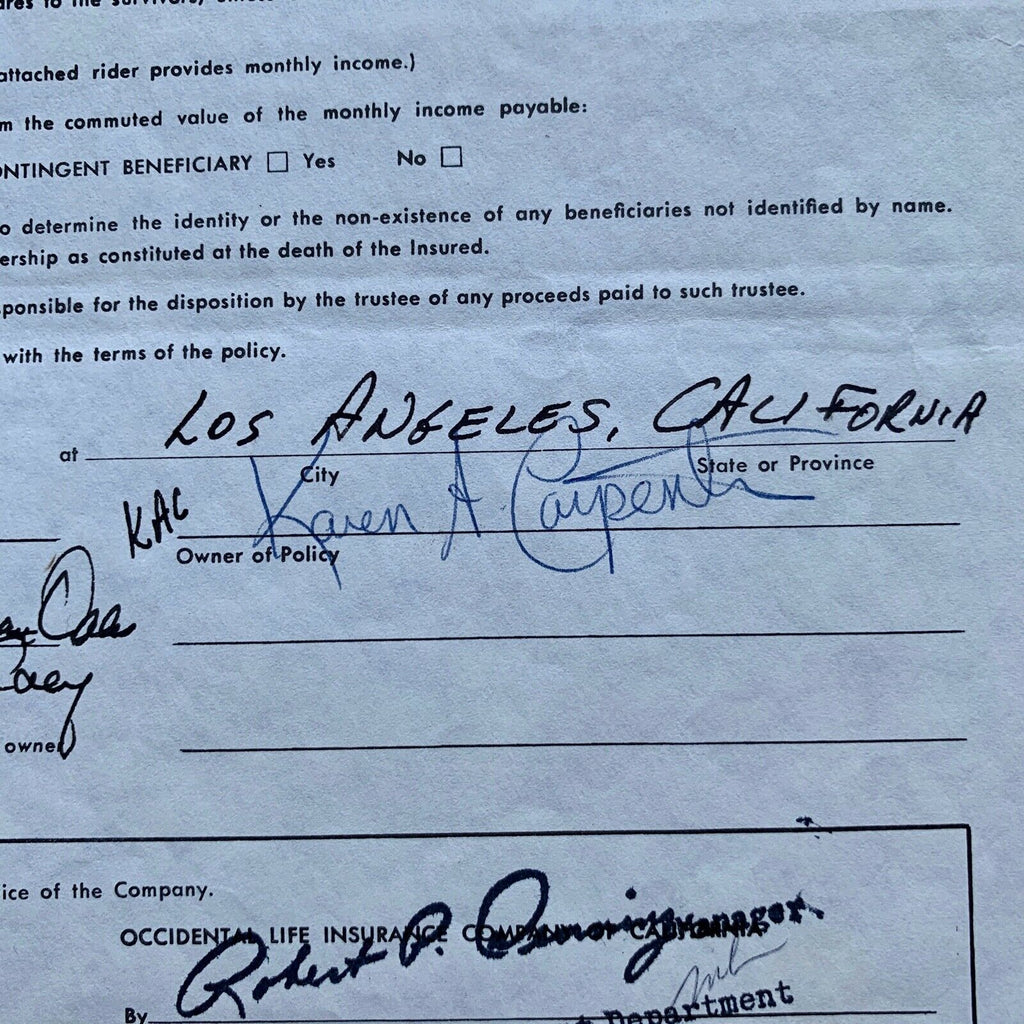 attached rider provides monthly income.)
m the commuted value of the monthly income payable:
ONTINGENT BENEFICIARY ☐ Yes No ☐
o determine the identity or the non-existence of any beneficiaries not identified by name.
ership as constituted at the death of the Insured.
ponsible for the disposition by the trustee of any proceeds paid to such trustee.
with the terms of the policy.
at LOS ANGELES, CALIFORNIA
City State or Province
KAC Karen A Carpenter
Owner of Policy
owner
ice of the Company.
OCCIDENTAL LIFE INSURANCE COMPANY OF CALIFORNIA
Manager.
By Robert P.
Department